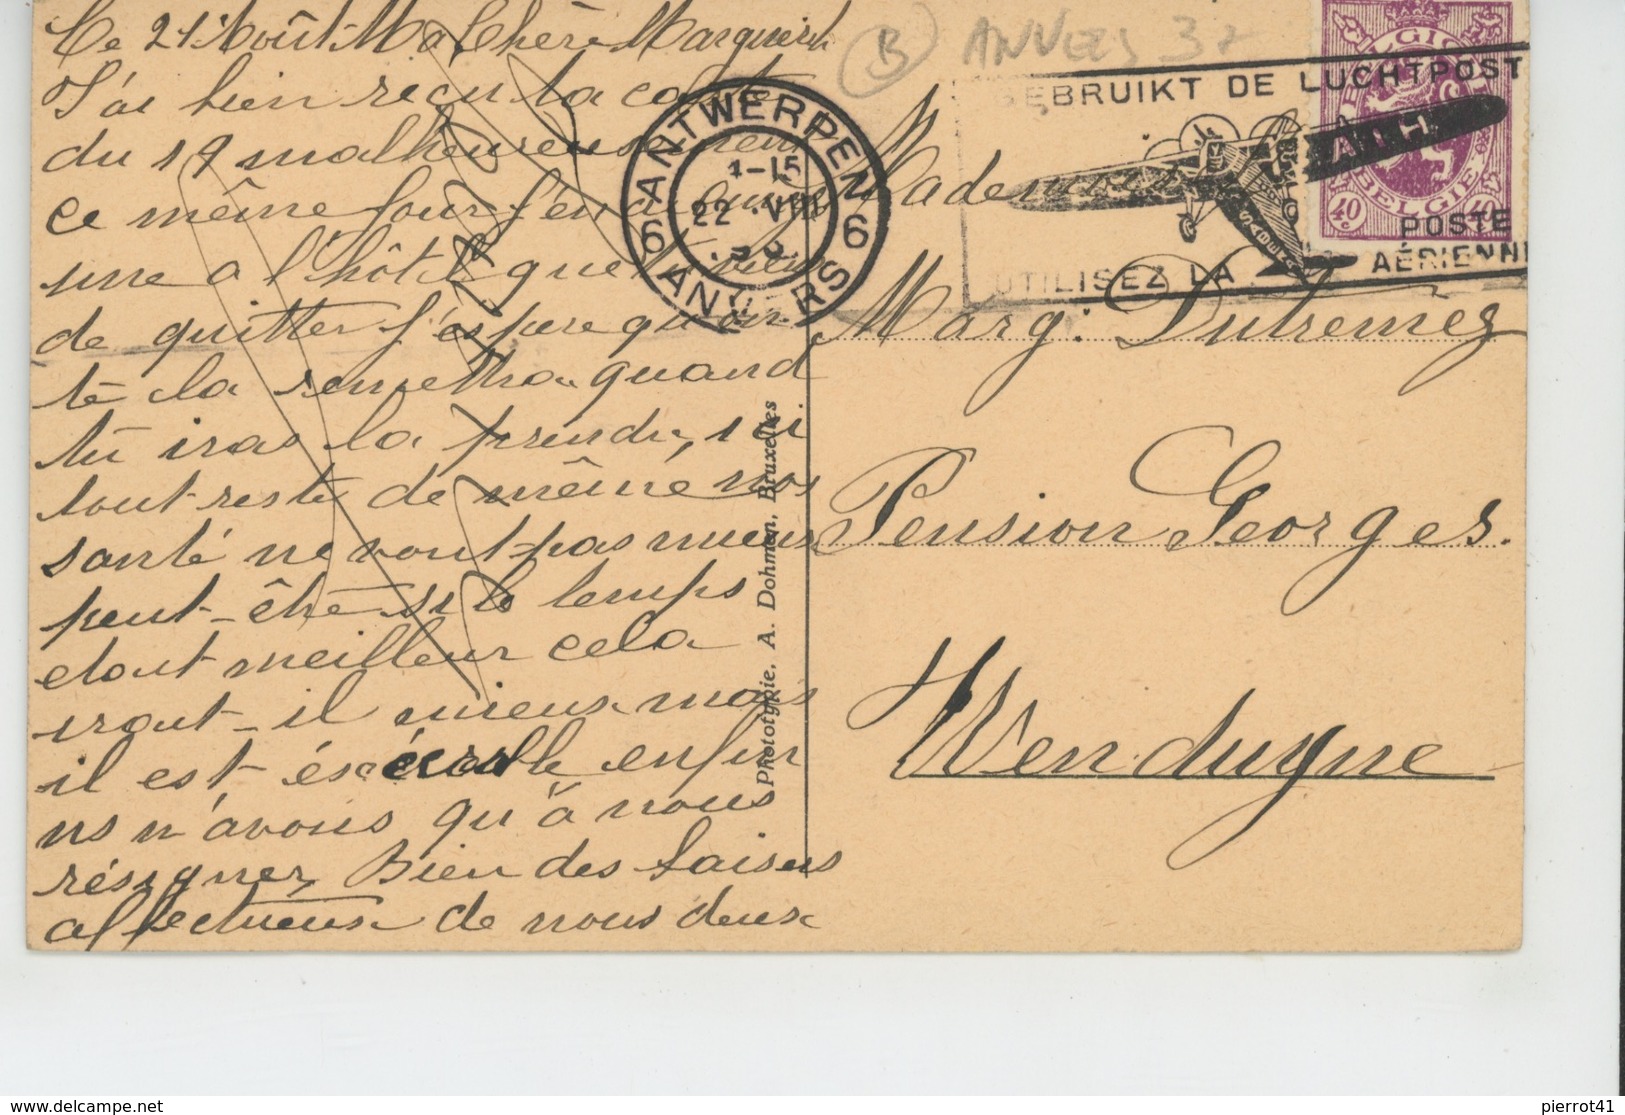 Ce 21 Août Ma Chère Marguerite
J'ai bien reçu ta carte
du 19 malheureusement
ce même jour j'en ai
une a l'hôtel que
de quitter j'espère qu'on
te la remettra quand
tu iras la prendre, ici
tout reste de même nos
santé ne vont pas mieux
peut-être si le temps
etait meilleur cela
irait-il mieux mais
il est exécrable enfin
ns n'avons qu'à nous
résigner. Bien des baisers
affectueux de nous deux
Photogypie. A. Dohmen, Bruxelles
B ANVERS 37
ANTWERPEN
1-15
22 VIII
6 6
ANVERS
GEBRUIKT DE LUCHTPOST
SABENA
UTILISEZ LA POSTE AÉRIENNE
BELGIQUE
BELGIE
40 c 40 c
Mademoiselle
Marg: Dutremez
Pension Georges.
Wenduyne
www.delcampe.net
pierrot41